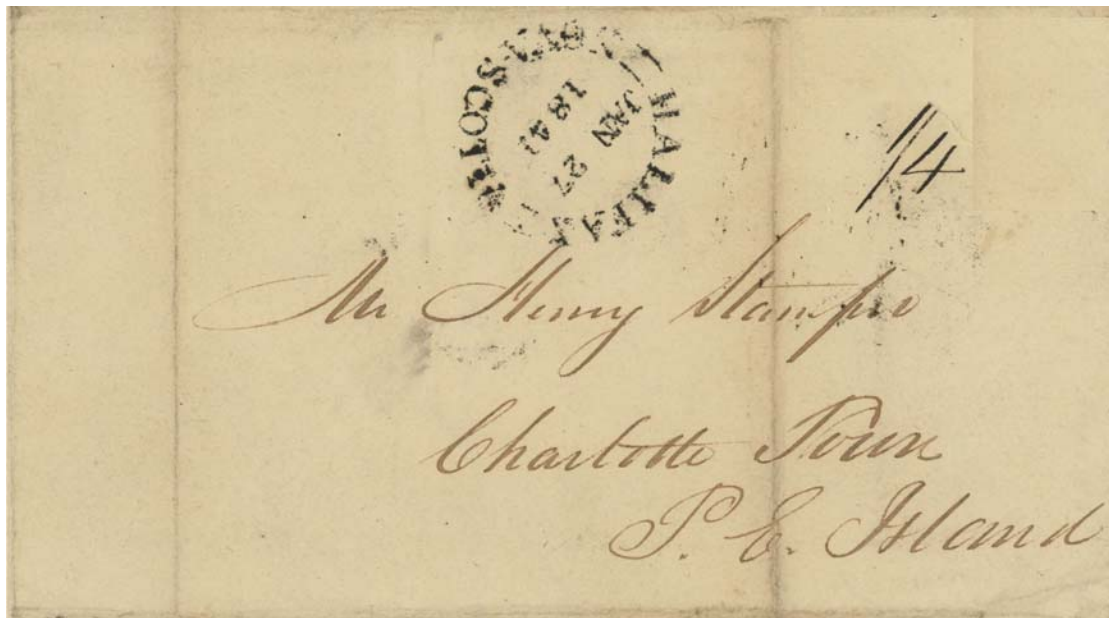 HALIFAX NOVA SCOTIA
JAN 27
1841
1/4
Mr Henry Stamper
Charlotte Town
P. E. Island